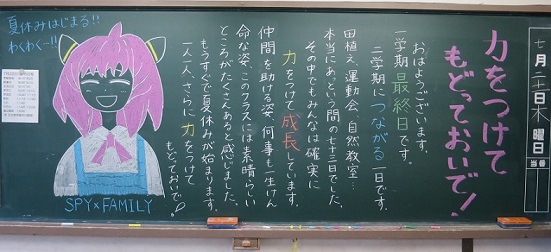 七月二十日木曜日
日番
力をつけて
もどっておいで！
おはようございます。
一学期最終日です。
二学期につながる一日です。
田植え、運動会、自然教室…
本当にあっという間の七十三日でした。
その中でもみんなは確実に
力をつけて成長しています。
仲間を助ける姿、何事も一生けん
命な姿、このクラスには素晴らしい
ところがたくさんあると感じました。
もうすぐで夏休みが始まります。
一人一人、さらに力をつけて
もどっておいで！
夏休みはじまる!!
わくわくー!!
SPY×FAMILY